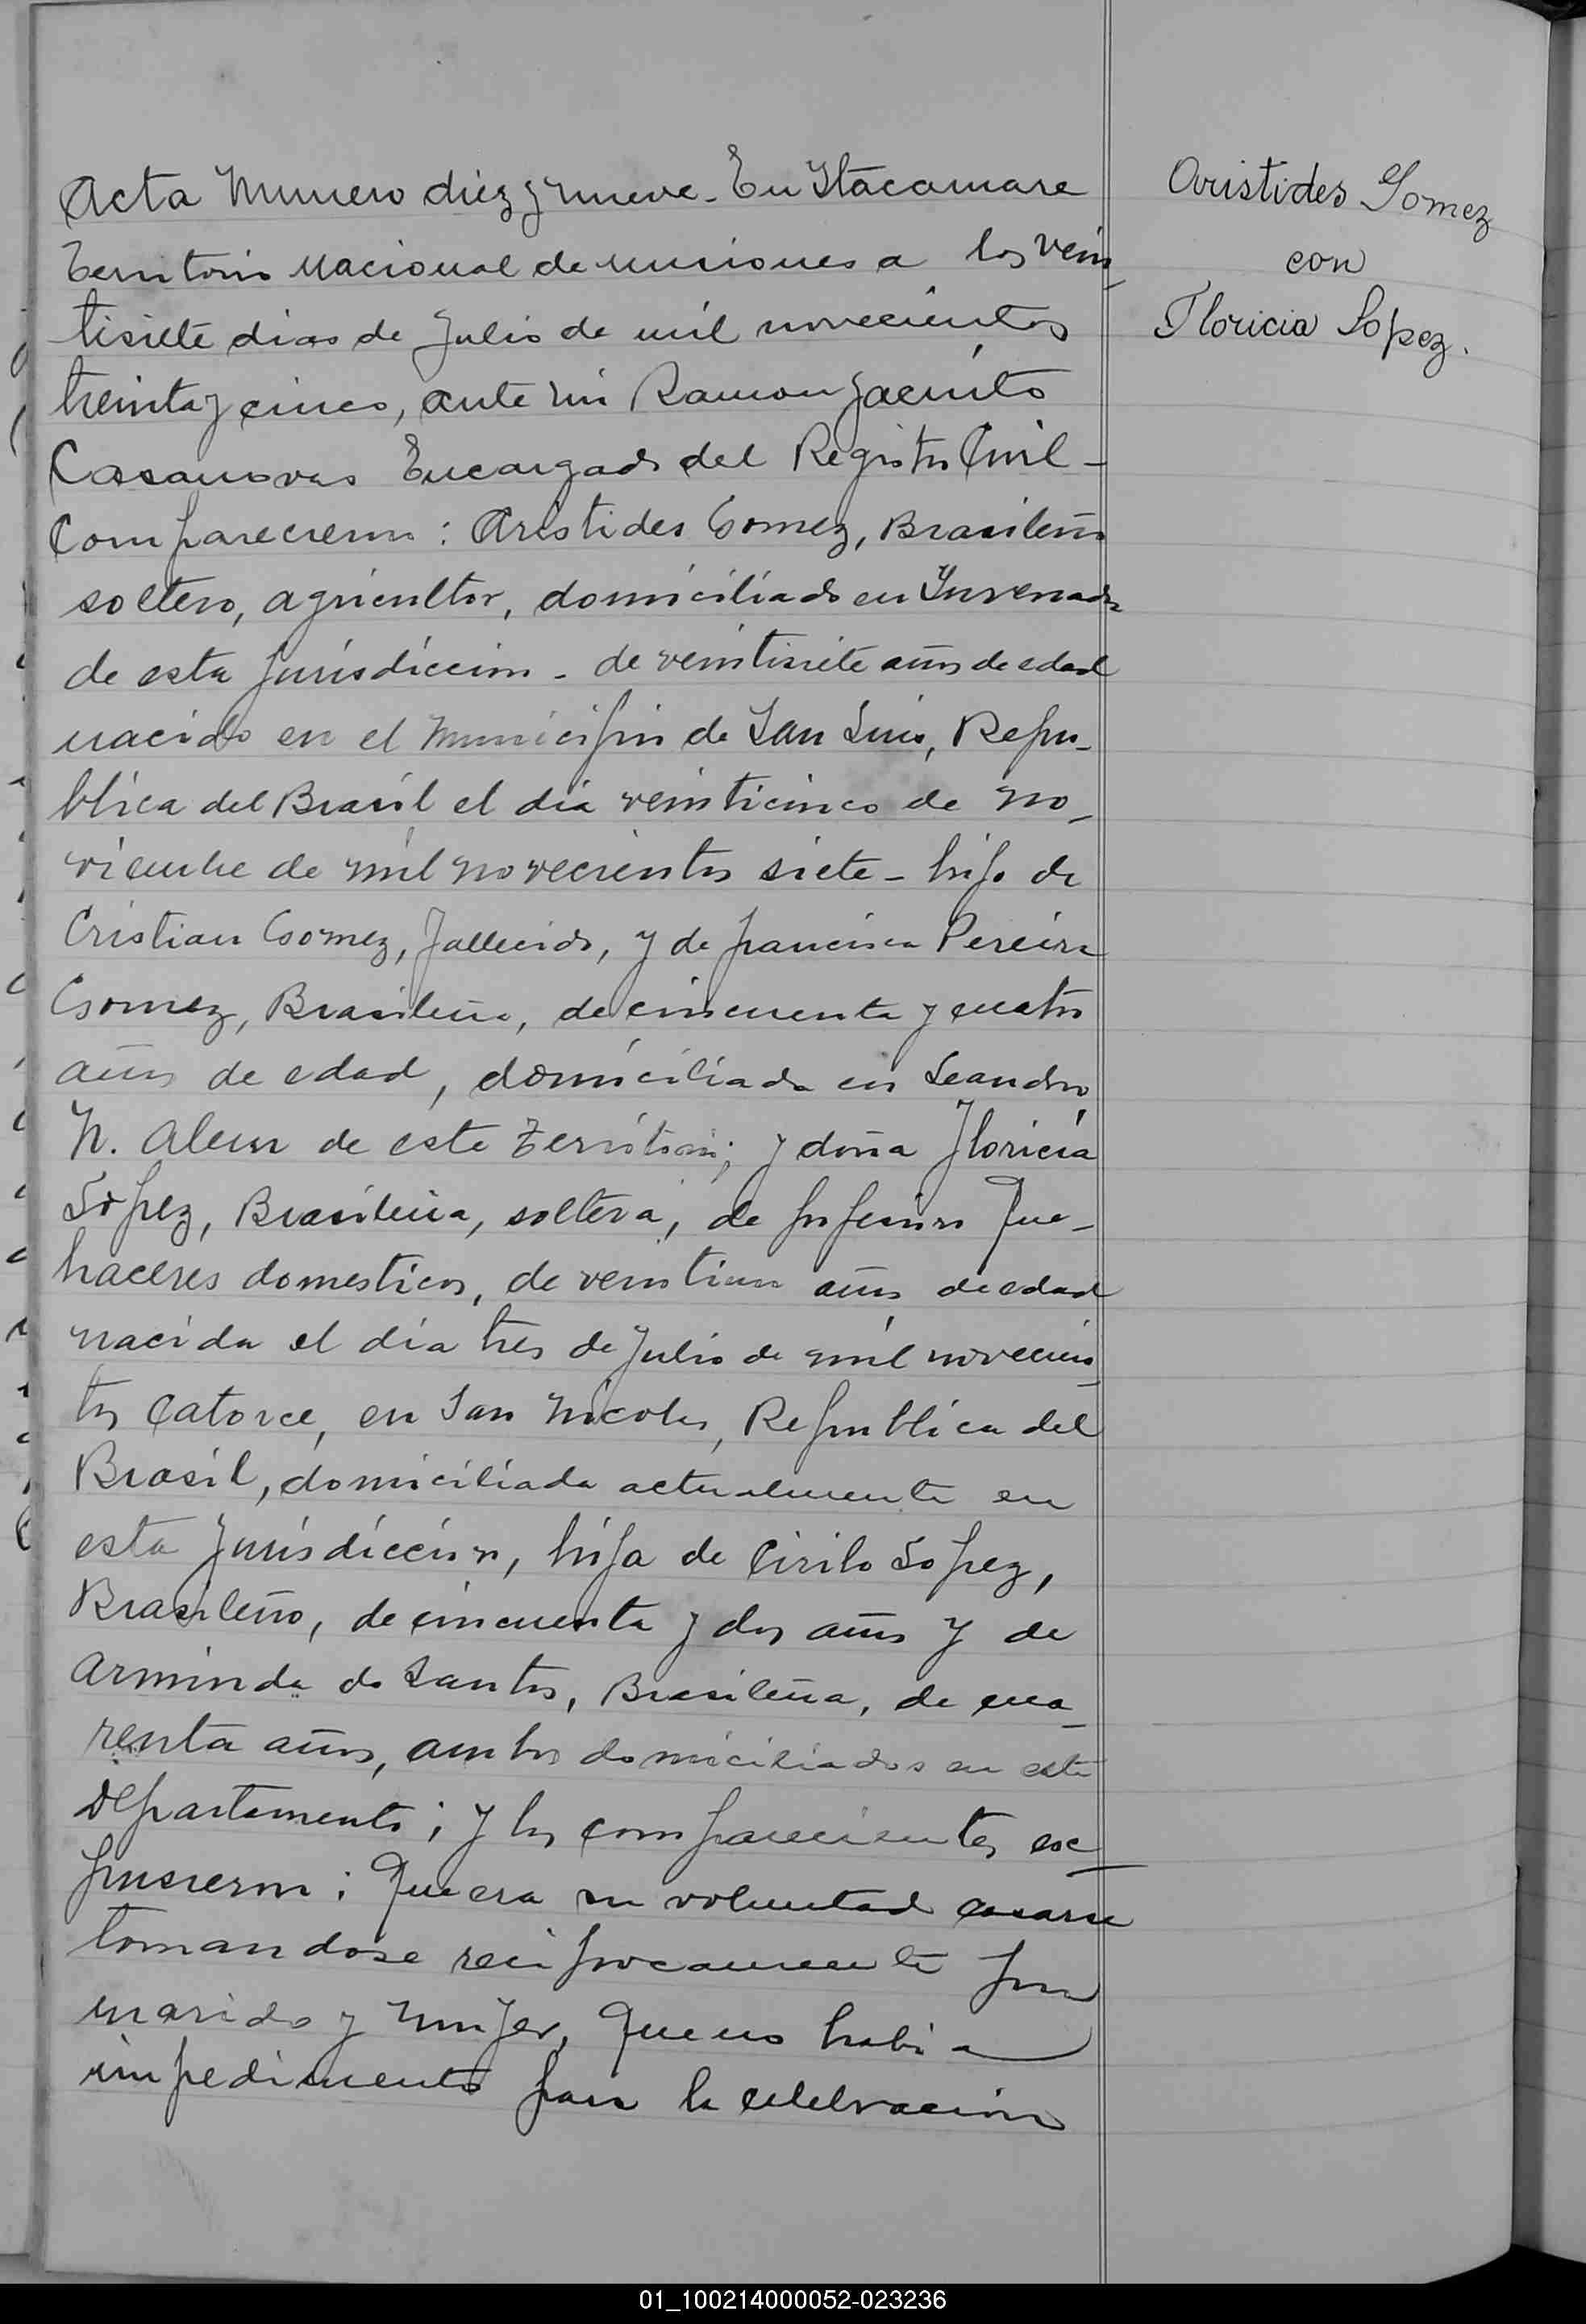 Acta Numero diez y nueve - En Itacaruare
Territorio Nacional de Misiones a los vein_
tisiete dias de Julio de mil novecientos
treinta y cinco, ante mi Ramon Jacinto
Casanovas Encargado del Registro Civil -
Comparecieron : Aristides Gomez, Brasileño
soltero, agricultor, domiciliado en Invernada
de esta Jurisdiccion - de veintisiete años de edad
nacido en el Municipio de San Luis, Repu_
blica del Brasil el dia veinticinco de No_
viembre de mil novecientos siete - hijo de
Cristian Gomez, fallecido, y de francisca Pereira
Gomez, Brasileña, de cincuenta y cuatro
años de edad, domiciliada en Leandro
N. Alem de este Territorio; y doña Floricia
Lopez, Brasileña, soltera, de profesion Que_
haceres domesticos, de veintiun años de edad
nacida el dia tres de Julio de mil novecien_
tos catorce, en San Nicolas, Republica del
Brasil, domiciliada actualmente en
esta Jurisdiccion, hija de Cirilo Lopez,
Brasileño, de cincuenta y dos años y de
Arminda do Santos, Brasileña, de cua_
renta años, ambos domiciliados en este
Departamento ; y los comparecientes ex_
pusieron : Que era su voluntad casarse
tomandose reciprocamente por
marido y mujer, Que no habia
impedimento para la celebracion
Aristides Gomez
con
Floricia Lopez.
01_100214000052-023236